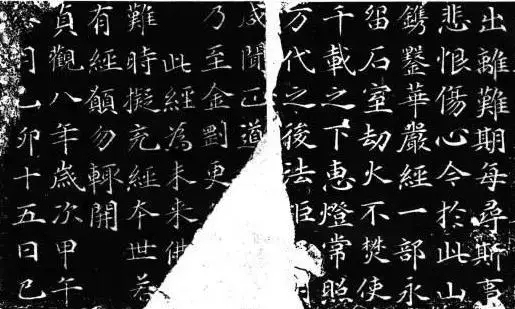 出離難期每尋斯事
悲恨傷心今於此山
鐫鑿華嚴經一部永
留石室劫火不焚使
千載之下惠燈常照
万代之後法炬明
咸聞正道
乃至金剛更
此經為未來佛
難時擬充經本世若
有經願勿輒開
貞觀八年歲次甲午
月乙卯十五日己